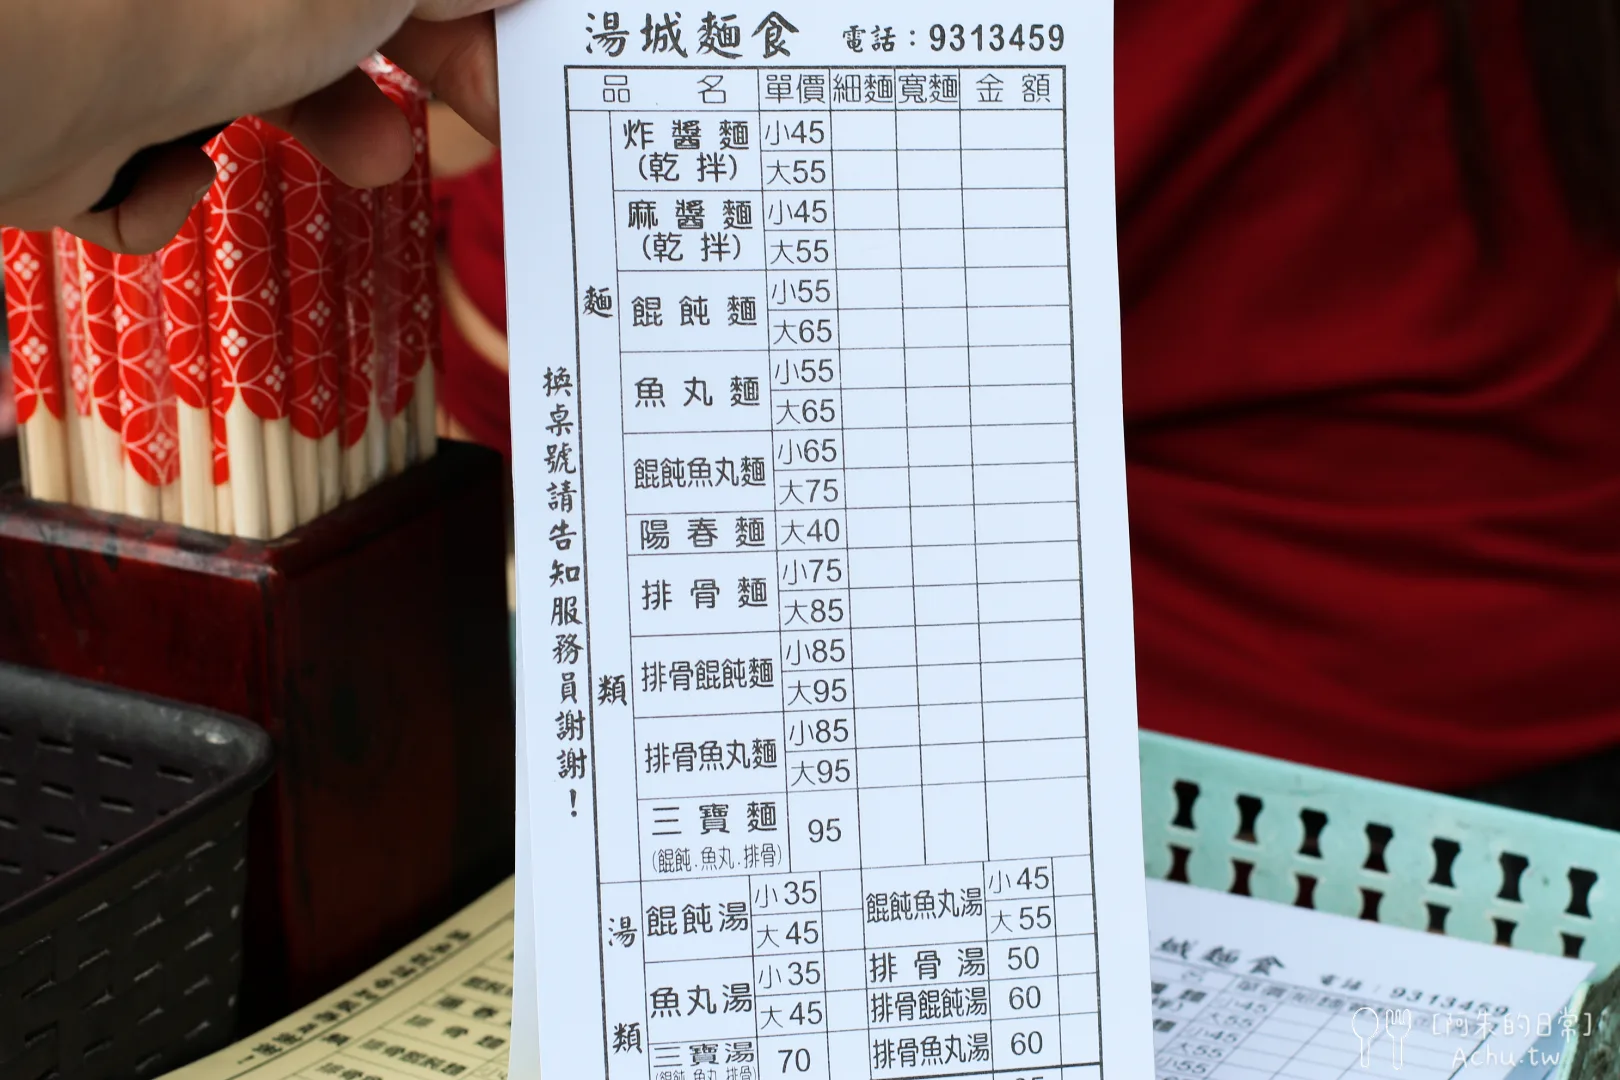 湯城麵食 電話：9313459
品名 單價 細麵 寬麵 金額
麵類
炸醬麵(乾拌) 小45
大55
麻醬麵(乾拌) 小45
大55
餛飩麵 小55
大65
魚丸麵 小55
大65
餛飩魚丸麵 小65
大75
陽春麵 大40
排骨麵 小75
大85
排骨餛飩麵 小85
大95
排骨魚丸麵 小85
大95
三寶麵 95
(餛飩.魚丸.排骨)
湯類
餛飩湯 小35
大45
魚丸湯 小35
大45
三寶湯 70
(餛飩.魚丸.排骨)
餛飩魚丸湯 小45
大55
排骨湯 50
排骨餛飩湯 60
排骨魚丸湯 60
換桌號請告知服務員謝謝！
城麵食 電話：9313459
[阿朱的日常]
Achu.tw